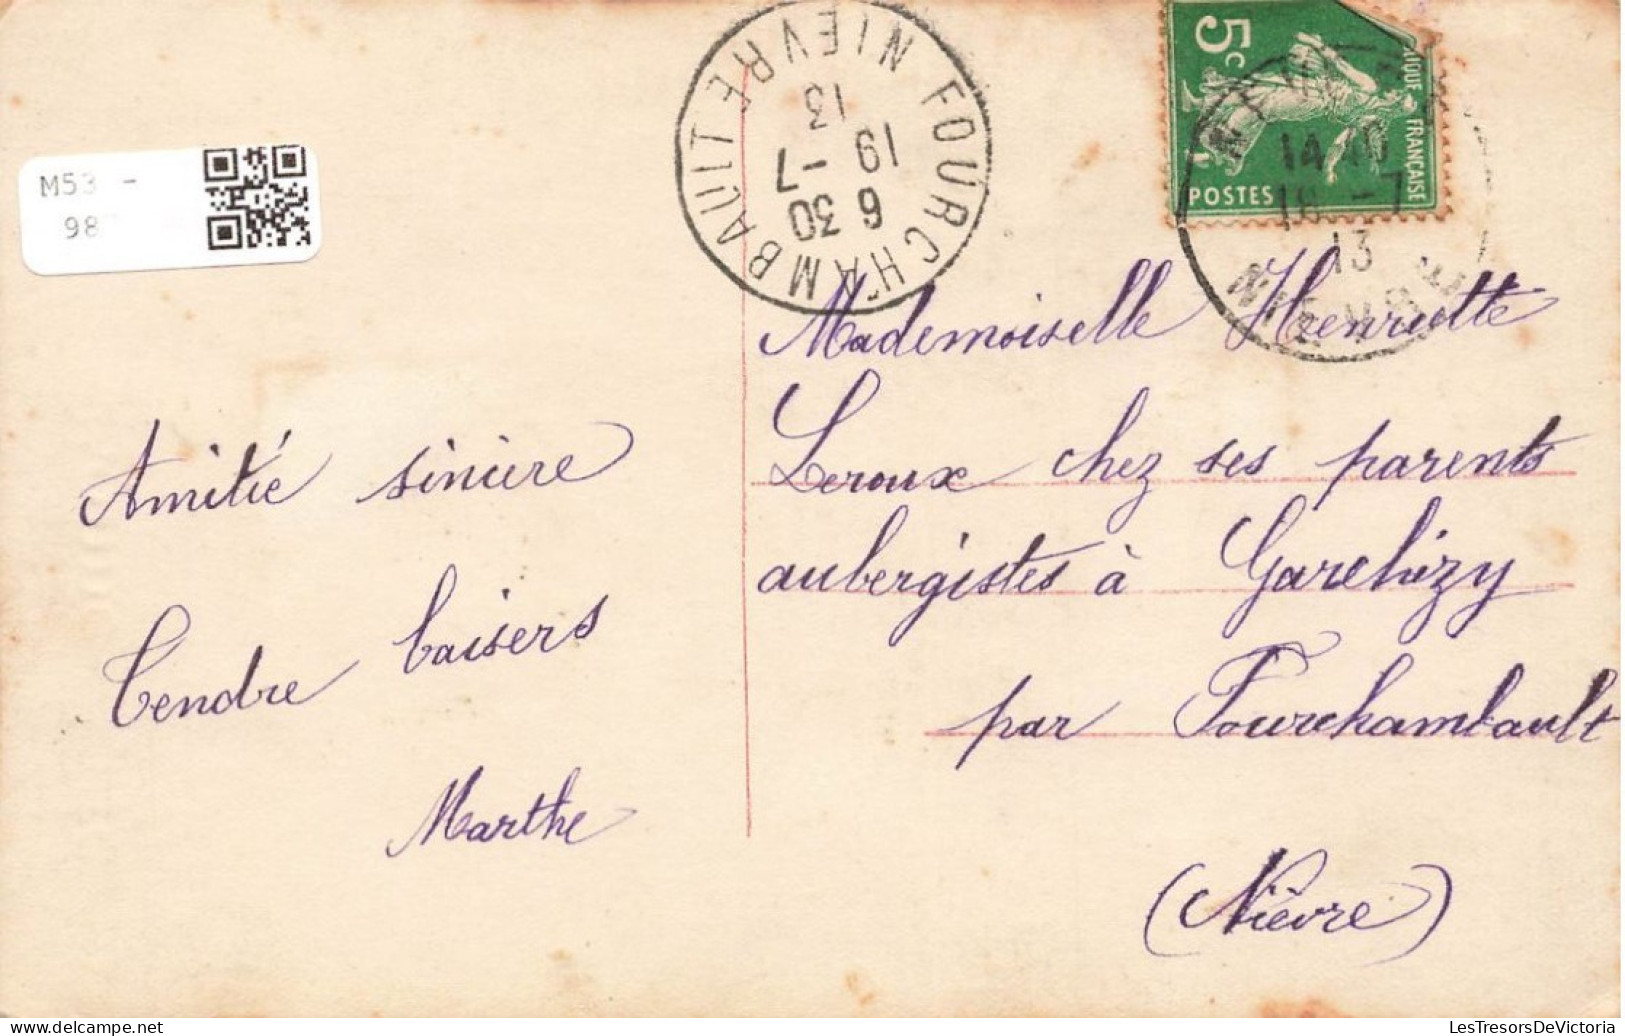 M53 -
98
FOURCHAMBAULT
NIEVRE
6 30
19 -7
13
5c
FRANÇAISE
POSTES
14
18 -7
13
NIEVRE
Mademoiselle Henriette
Leroux chez ses parents
aubergistes à Garchizy
par Fourchambault
(Nièvre)
Amitié sincère
Tendre baisers
Marthe
LesTresorsDeVictoria